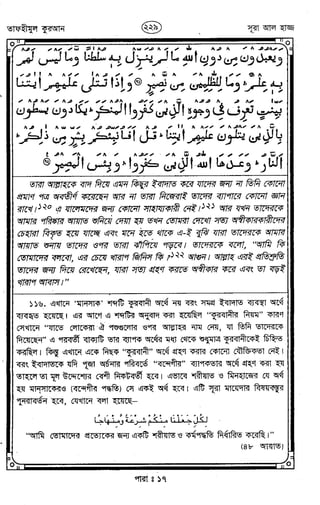 তাফহীমুল কুরআন
২২৯
সূরা আল হাজ্জ
وَيَعْبُدُونَ مِنْ دُونِ اللهِ مَا لَمْ يُنَزِّلْ بِهِ سُلْطٰنًا وَمَا لَيْسَ لَهُمْ
بِهِ عِلْمٌ ۚ وَمَا لِلظّٰلِمِينَ مِنْ نَّصِيرٍ ۞ وَإِذَا تُتْلٰى عَلَيْهِمْ اٰيٰتُنَا
بَيِّنٰتٍ تَعْرِفُ فِي وُجُوهِ الَّذِينَ كَفَرُوا الْمُنْكَرَ ۚ يَكَادُونَ يَسْطُونَ
بِالَّذِينَ يَتْلُونَ عَلَيْهِمْ اٰيٰتِنَا ۚ قُلْ اَفَاُنَبِّئُكُمْ بِشَرٍّ مِّنْ ذٰلِكُمْ ۚ
اَلنَّارُ ۚ وَعَدَهَا اللهُ الَّذِينَ كَفَرُوا ۚ وَبِئْسَ الْمَصِيرُ ۞
তারা আল্লাহকে বাদ দিয়ে এমন কিছুর ইবাদাত করে যাদের জন্য না তিনি কোনো
প্রমাণ পত্র অবতীর্ণ করেছেন আর না তারা নিজেরাই তাদের ব্যাপারে কোনো জ্ঞান
রাখে।১২০ এ যালেমদের জন্য কোনো সাহায্যকারী নেই।১২১ আর যখন তাদেরকে
আমার পরিষ্কার আয়াত শুনিয়ে দেয়া হয় তখন তোমরা দেখো সত্য অস্বীকারকারীদের
চেহারা বিকৃত হয়ে যাচ্ছে এবং মনে হতে থাকে এ-ই বুঝি যারা তাদেরকে আমার
আয়াত শুনায় তাদের ওপর তারা ঝাঁপিয়ে পড়বে। তাদেরকে বলো, “আমি কি
তোমাদের বলবো, এর চেয়ে খারাপ জিনিস কি ?১২২ আগুন। আল্লাহ এরই প্রতিশ্রুতি
তাদের জন্য দিয়ে রেখেছেন, যারা সত্য গ্রহণ করতে অস্বীকার করে এবং তা বড়ই
খারাপ আবাস।”
১১৬. এখানে ‘মানসাক’ শব্দটি কুরবানী অর্থে নয় বরং সমগ্র ইবাদাত ব্যবস্থা অর্থে
ব্যবহৃত হয়েছে। এর আগে এ শব্দটির অনুবাদ করা হয়েছিল “কুরবানীর নিয়ম” কারণ
সেখানে “যাতে লোকেরা ঐ পশুগুলোর ওপর আল্লাহর নাম নেয়, যা তিনি তাদেরকে
দিয়েছেন” এ পরবর্তী বাক্যটি তার ব্যাপক অর্থের মধ্য থেকে শুধুমাত্র কুরবানীকেই চিহ্নিত
করছিল। কিন্তু এখানে একে নিছক “কুরবানী” অর্থে গ্রহণ করার কোনো যৌক্তিকতা নেই।
বরং ইবাদাতকে যদি পূজা অর্চনার পরিবর্তে “বন্দেগীর” ব্যাপকতার অর্থে গ্রহণ করা হয়
তাহলে তা মূল উদ্দেশ্যের বেশী নিকটবর্তী হবে। এভাবে শরীয়াত ও মিনহাজের যে অর্থ
হয় মানসাকেরও (বন্দেগীর পদ্ধতি) সে একই অর্থ হবে। এটি সূরা মায়েদার বিষয়বস্তুর
পুনরাবর্তন হবে, যেখানে বলা হয়েছে–
لِكُلٍّ جَعَلْنَا مِنْكُمْ شِرْعَةً وَّمِنْهَاجًا
“আমি তোমাদের প্রত্যেকের জন্য একটি শরীয়াত ও কর্মপদ্ধতি নির্ধারিত করেছি।”
(৪৮ আয়াত)
পারা : ১৭